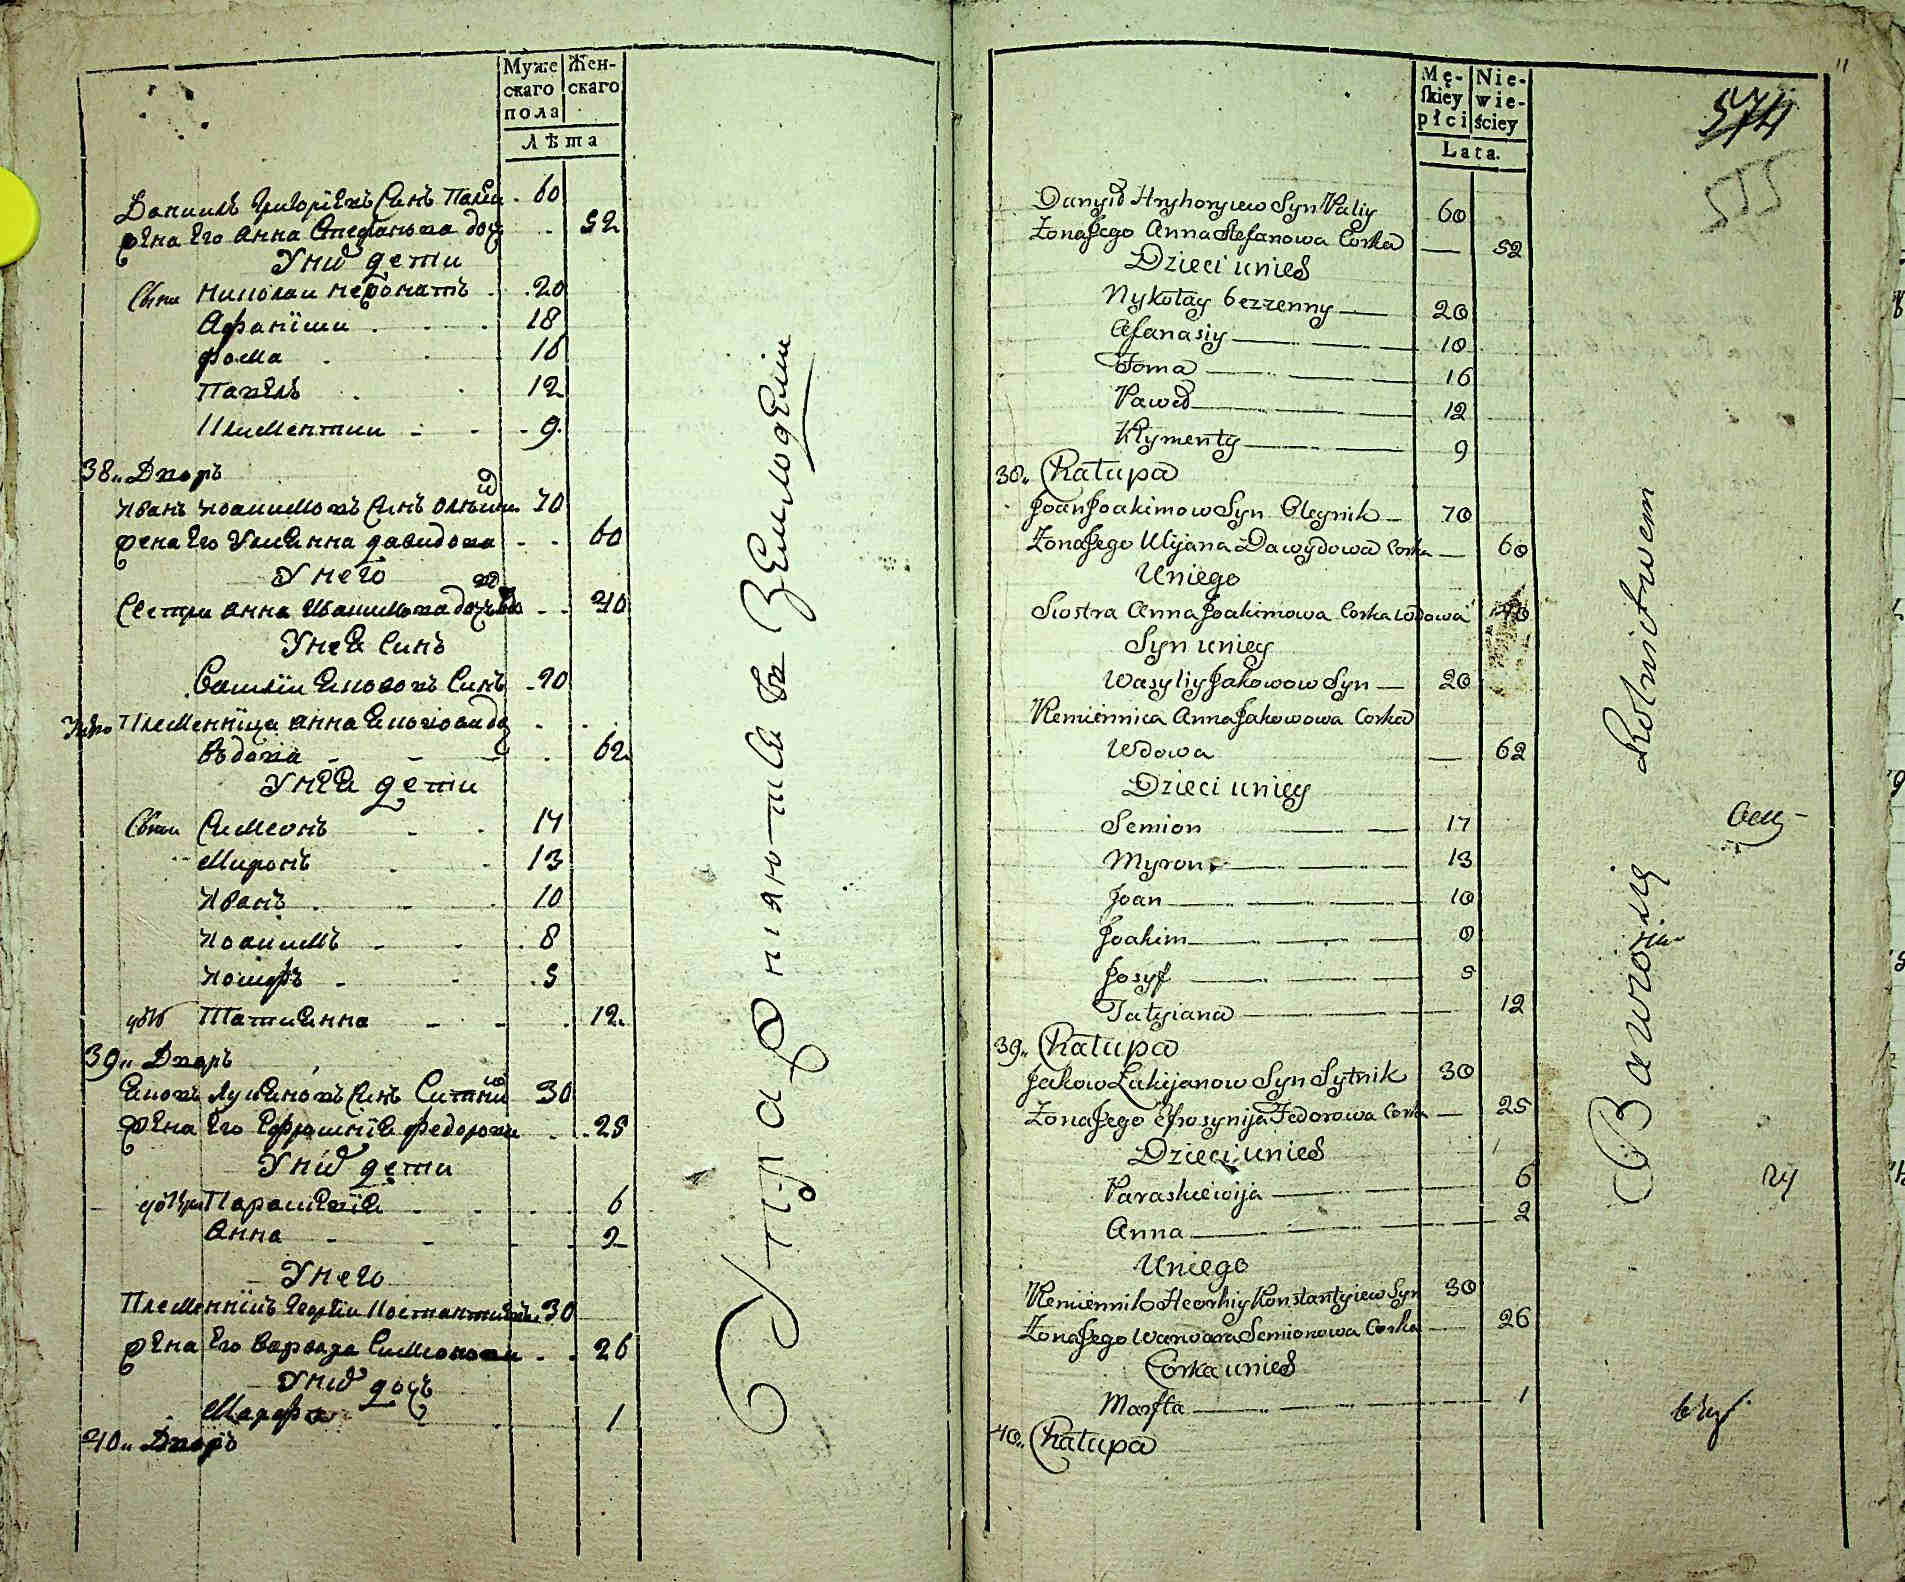 Муже
скаго
пола
Жен-
скаго
Лѣта
Даниилъ Григоріевъ Синъ Палїи 60
жена Его Анна Стефанова доч 52
У них дети
Сыни Николаи нежонатъ 20
Афанїи 18
Фома 16
Павелъ 12
Климентии 9
38 Дворъ
Иванъ Иоакимовъ Синъ Олѣйник 70
жена Его Улиянна давидова 60
У него
Сестра Анна Иоакимова дочъ 40
У неѧ Синъ
Василїи Якововъ Синъ 20
Племенница Анна Яковова до
вдова 62
У неѧ дети
Сыни Симеонъ 17
Миронъ 13
Иванъ 10
Иоакимъ 8
Иосифъ 5
Татиянна 12
39 Дворъ
Яковъ Лукяновъ Синъ Ситник 30
жена Его Ефросинїя Федорова 25
У них дети
Параскевїя 6
Анна 2
У него
Племенникъ Георгїи Костантиевъ 30
жена Его Варвара Симеонова 26
У них дочъ
Марфа 1
40 Дворъ
Упражняются в Земледелїи
Mę-
skiey
płci
Nie-
wie-
ściey
Lata.
11
574
555
Danyił Hryhoryiew Syn Paliy 60
Żona Jego Anna Stefanowa Corka 52
Dzieci unich
Nykołay bezzenny 20
Afanasiy 18
Foma 16
Paweł 12
Kłymenty 9
38„ Chałupa
Joan Joakimow Syn Oleynik 70
Żona Jego Ulijana Dawydowa Corka 60
Uniego
Siostra Anna Joakimowa Corka Wdowa 40
Syn unięy
Wasyliy Jakowow Syn 20
Plemiennica Anna Jakowowa Corka
Wdowa 62
Dzieci unięy
Semion 17
Myron 13
Joan 10
Joakim 8
Josyf 5
Tatyiana 12
39„ Chałupa
Jakow Łukijanow Syn Sytnik 30
Żona Jego Efrosynija Fedorowa Corka 25
Dzieci unich
Paraskiewija 6
Anna 2
Uniego
Plemiennik Heorhiy Konstantyiew Syn 30
Żona Jego Warwara Semionowa Corka 26
Corka unich
Marfta 1
40„ Chałupa
Bawią się Rolnictwem